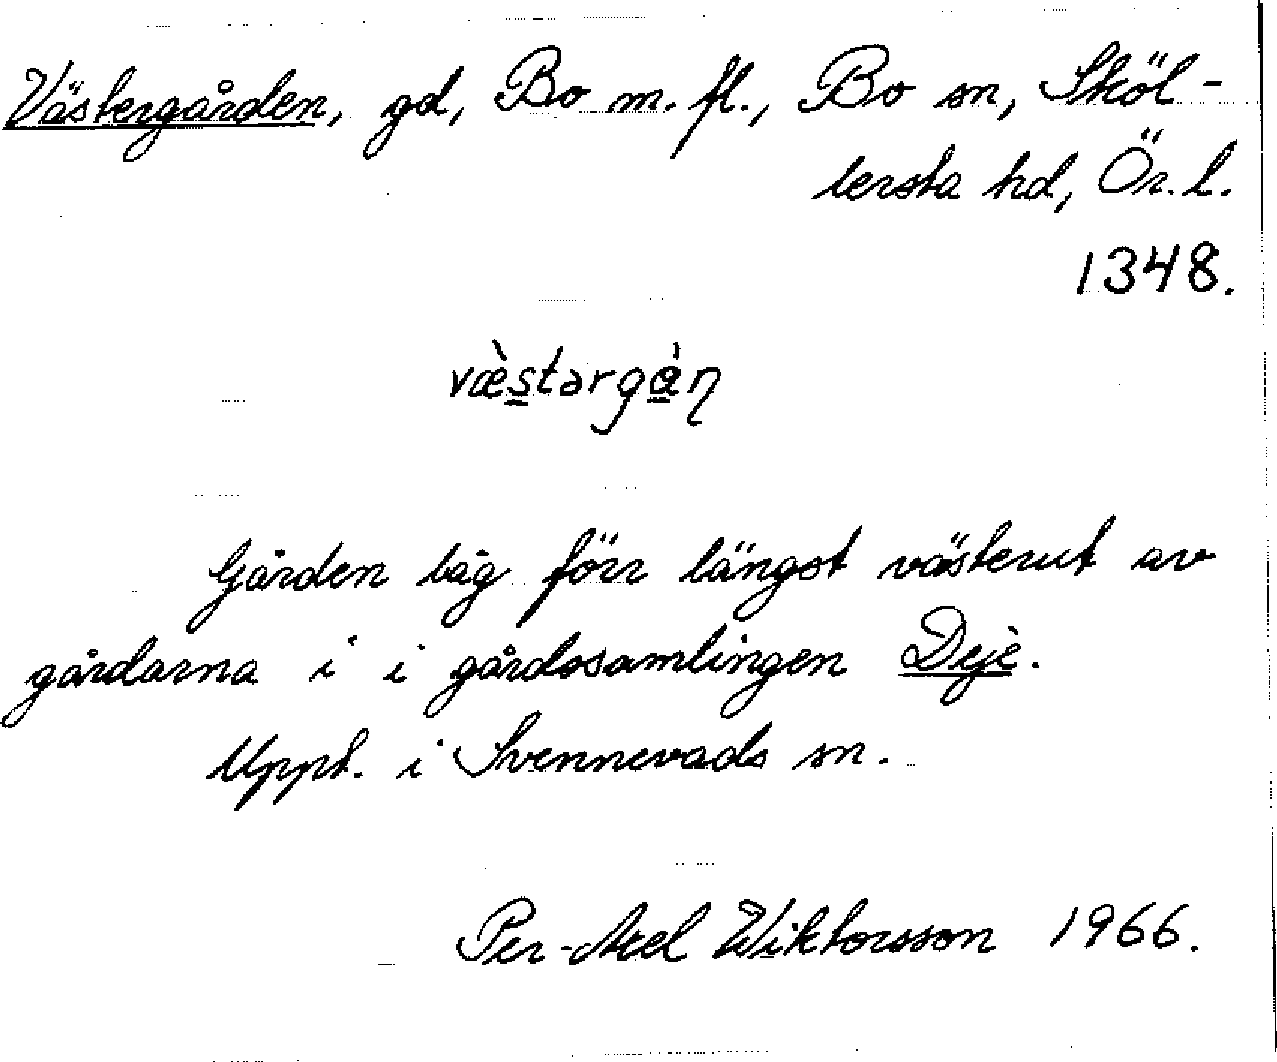 Västergården, gd, Bo m. fl., Bo sn, Sköl-
lersta hd, Ör. l.
1348.
væ̀stərgàn̡
Gården låg förr längst västerut av
gårdarna i i gårdssamlingen Deje.
Uppt. i Svennevads sn.
Per-Axel Wiktorsson 1966.